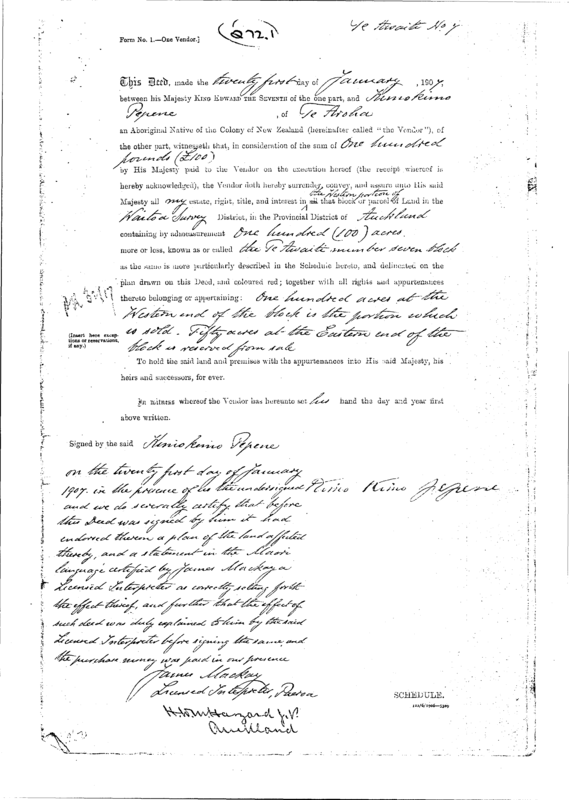 Te Awaite No 7
Form No. 1.—One Vendor.]
(272.1)
This Deed, made the twenty first day of January, 1907,
between his Majesty KING EDWARD THE SEVENTH of the one part, and Kimokimo
Pepene, of Te Aroha
an Aboriginal Native of the Colony of New Zealand (hereinafter called "the Vendor"), of
the other part, witnesseth that, in consideration of the sum of One hundred
pounds (£100)
by His Majesty paid to the Vendor on the execution hereof (the receipt whereof is
hereby acknowledged), the Vendor doth hereby surrender, convey, and assure unto His said
the Western portion of
Majesty all my estate, right, title, and interest in all that block or parcel of Land in the
Waitoa Survey District, in the Provincial District of Auckland
containing by admeasurement One hundred (100) acres,
more or less, known as or called the Te Awaite number seven block
as the same is more particularly described in the Schedule hereto, and delineated on the
plan drawn on this Deed, and coloured red; together with all rights and appurtenances
thereto belonging or appertaining: One hundred acres at the
Western end of the block is the portion which
[Insert here exceptions or reservations, if any.]
is sold. Fifty acres at the Eastern end of the
block is reserved from sale
To hold the said land and premises with the appurtenances into His said Majesty, his
heirs and successors, for ever.
In witness whereof the Vendor has hereunto set his hand the day and year first
above written.
Signed by the said Kimokimo Pepene
on the twenty first day of January
1907. in the presence of us the undersigned Kimo Kimo Pepene
and we do severally certify that before
this Deed was signed by him it had
endorsed thereon a plan of the land affected
thereby, and a statement in the Maori
language certified by James Mackay a
Licensed Interpreter as correctly setting forth
the effect thereof, and further that the effect of
such deed was duly explained to him by the said
Licensed Interpreter before signing the same, and
the purchase money was paid in our presence
James Mackay
Licensed Interpreter, Paeroa
J.P.
Auckland
SCHEDULE.